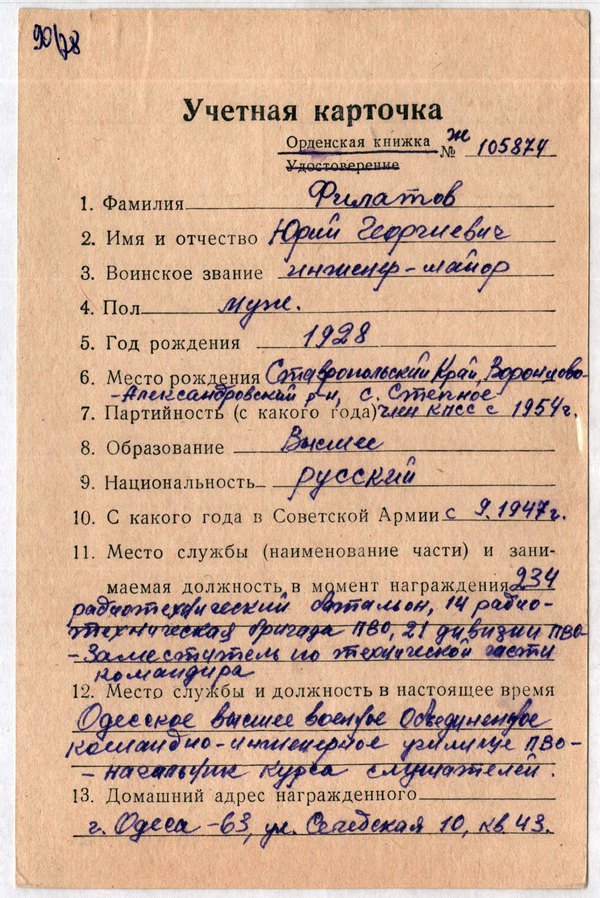 90/78
Учетная карточка
Орденская книжка
Удостоверение
№ Ж 105874
1. Фамилия Филатов
2. Имя и отчество Юрий Георгиевич
3. Воинское звание инженер-майор
4. Пол муж.
5. Год рождения 1928
6. Место рождения Ставропольский Край, Воронцово-
-Александровский р-н, с. Степное
7. Партийность (с какого года) член КПСС с 1954г.
8. Образование Высшее
9. Национальность русский
10. С какого года в Советской Армии с 9.1947г.
11. Место службы (наименование части) и зани-
маемая должность в момент награждения 234
радиотехнический батальон, 14 радио-
техническая бригада ПВО, 21 дивизии ПВО-
-Заместитель по технической части
командира
12. Место службы и должность в настоящее время
Одесское высшее военное Объединенное
командно-инженерное училище ПВО-
-начальник курса слушателей.
13. Домашний адрес награжденного
г. Одеса-63, ул. 10, кв 43.